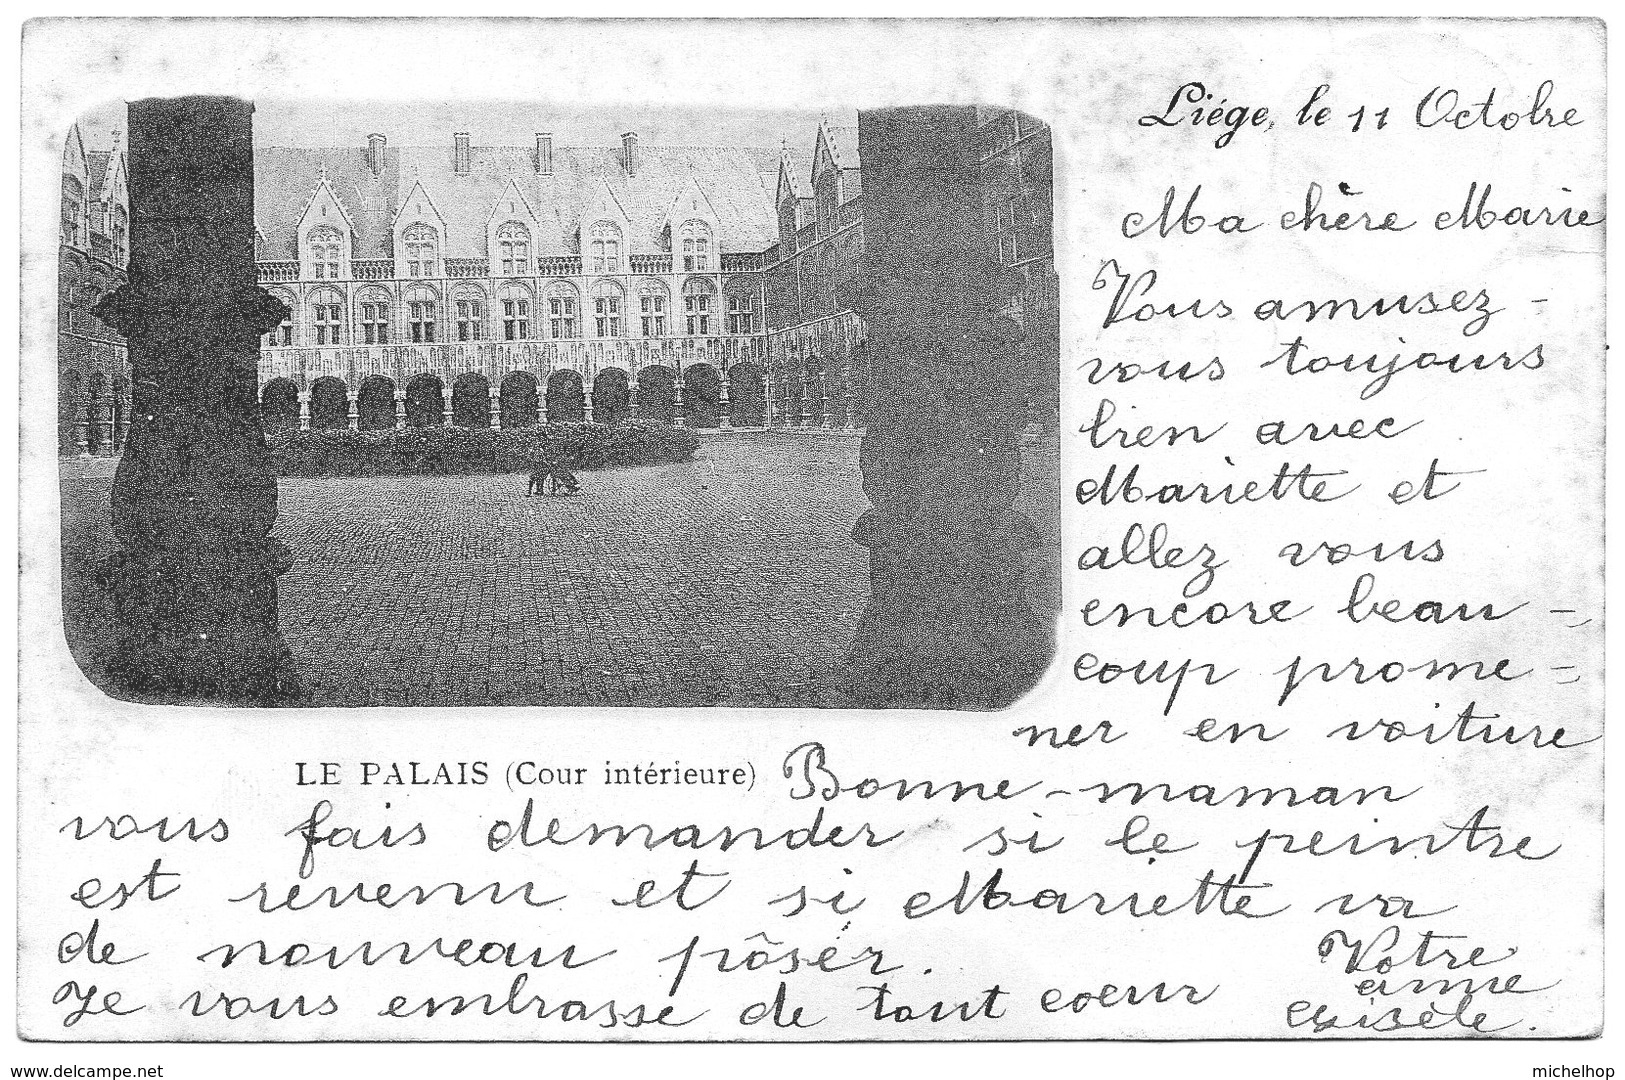 Liége, le 11 Octobre
Ma chère Marie
Vous amusez-
vous toujours
bien avec
Mariette et
allez vous
encore beau-
coup prome-
ner en voiture
LE PALAIS (Cour intérieure)
Bonne-maman
vous fais demander si le peintre
est revenu et si Mariette va
de nouveau pôser.
Je vous embrasse de tout coeur
Votre
amie
Gisèle.
www.delcampe.net
michelhop